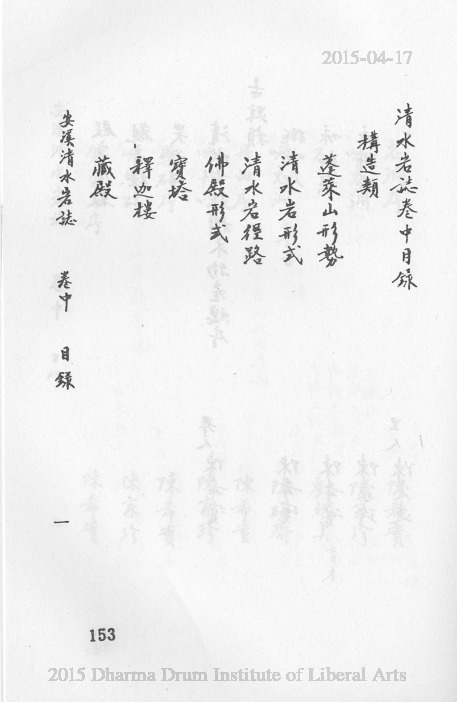 2015-04-17
清水岩誌卷中目錄
構造類
蓬萊山形勢
清水岩形式
清水岩徑路
佛殿形式
寶塔
釋迦樓
藏殿
安溪清水岩誌 卷中 目錄 一
153
2015 Dharma Drum Institute of Liberal Arts